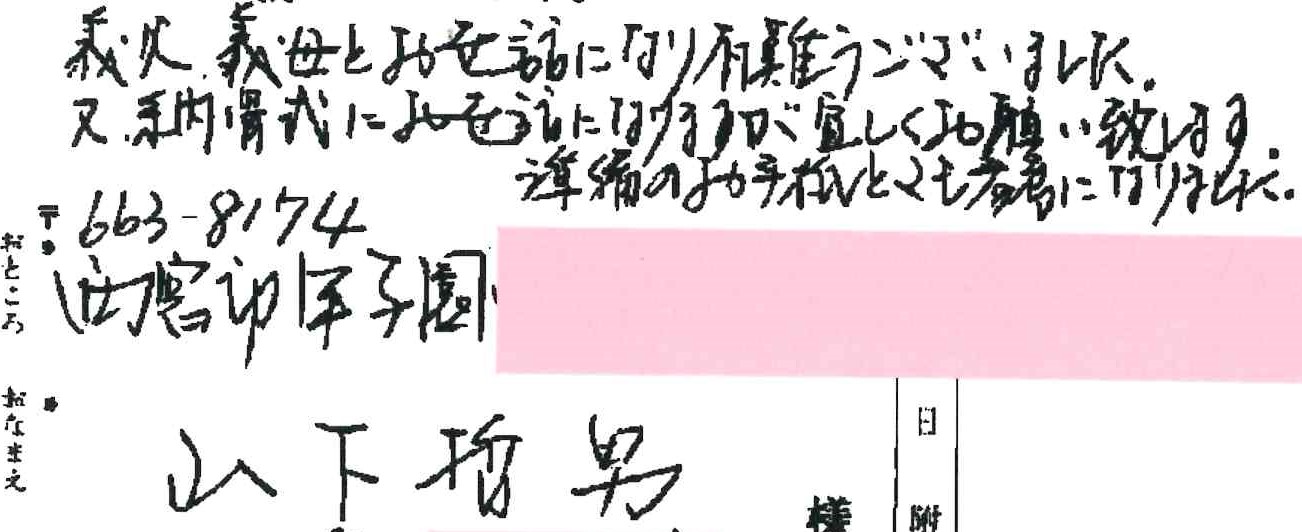 義父、義母とお世話になり有難うございました。
又、納骨式にお世話になりますが宜しくお願い致します。
準備のお手紙とても参考になりました。
〒663-8174
おところ
西宮市甲子園
おなまえ
山下哲男
様
日附